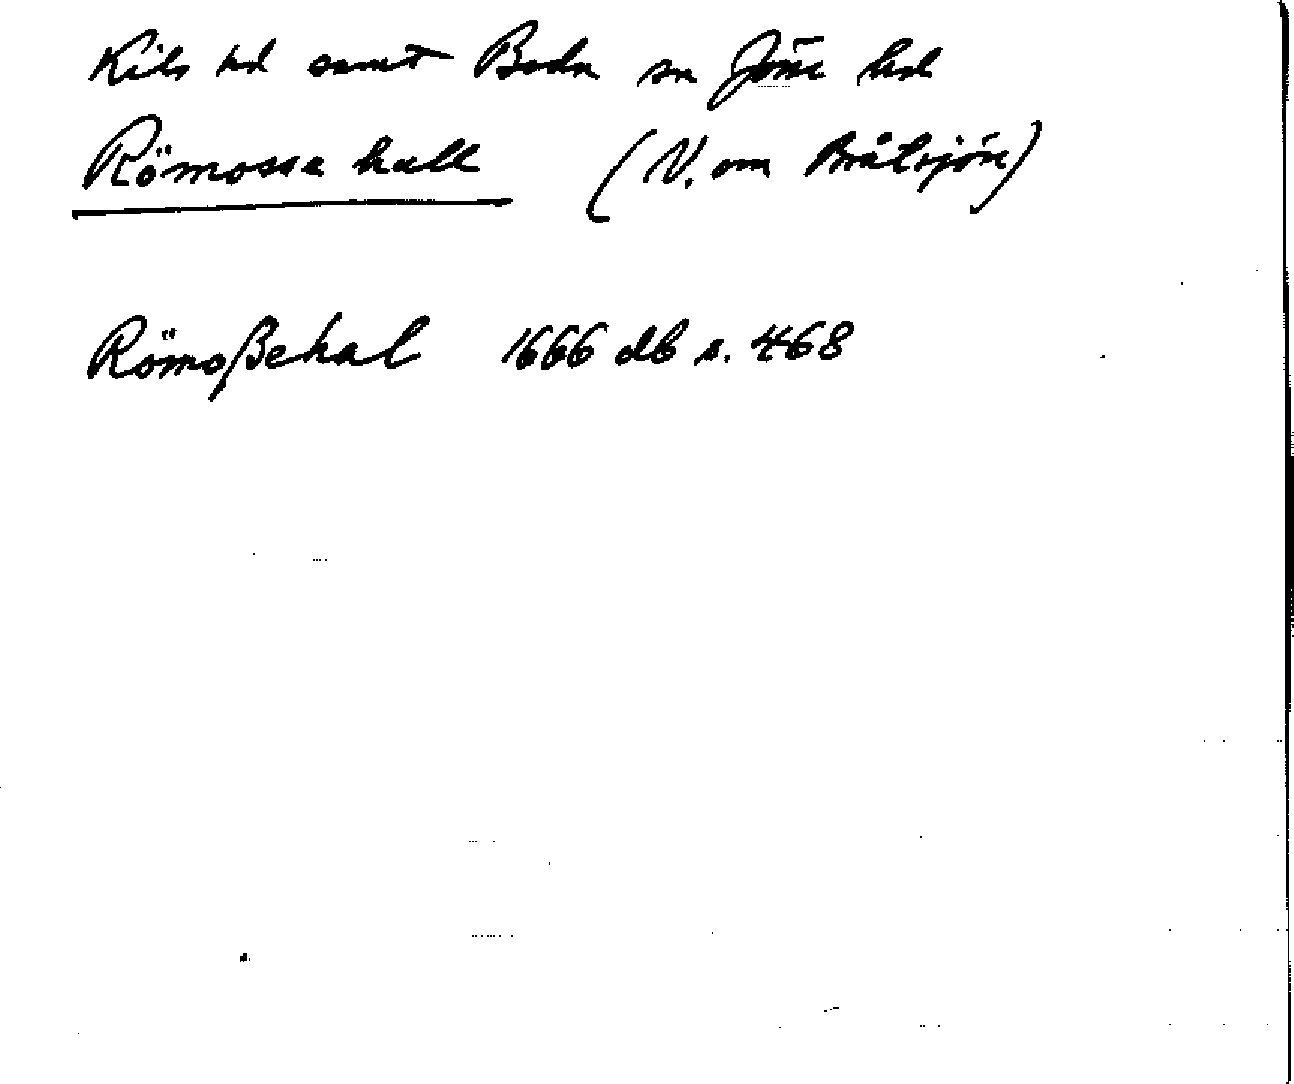 Kils hd samt Boda sn Jösse hd
Römosse hall (V. om Bråtsjön)
Römoßehal 1666 db s. 468